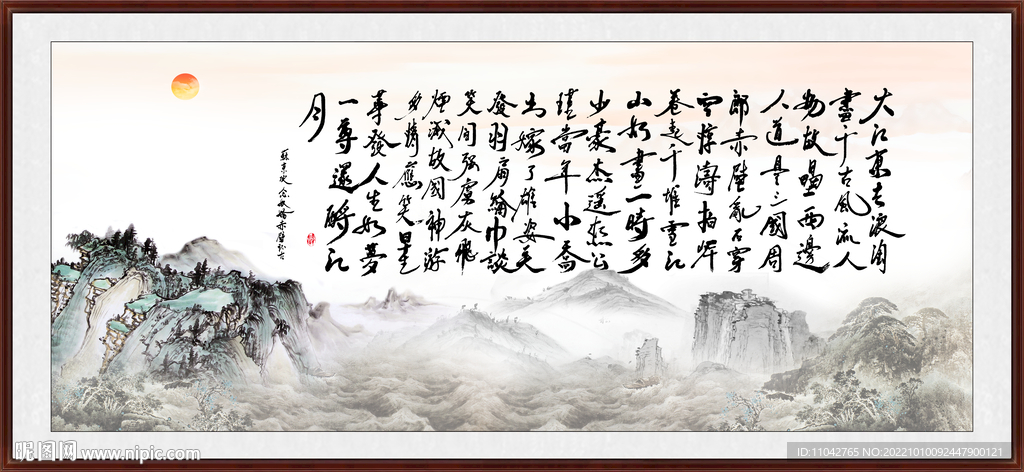 大江東去浪淘
盡千古風流人
物故壘西邊
人道是三國周
郎赤壁亂石穿
空驚濤拍岸
卷起千堆雪江
山如畫一時多
少豪杰遙想公
瑾當年小喬
出嫁了雄姿英
發羽扇綸巾談
笑間強虜灰飛
煙滅故國神游
多情應笑早生
華發人生如夢
一尊還酹江
月
蘇東坡念奴嬌赤壁懷古
昵图网 www.nipic.com
ID:11042765 NO:20221010092447900121